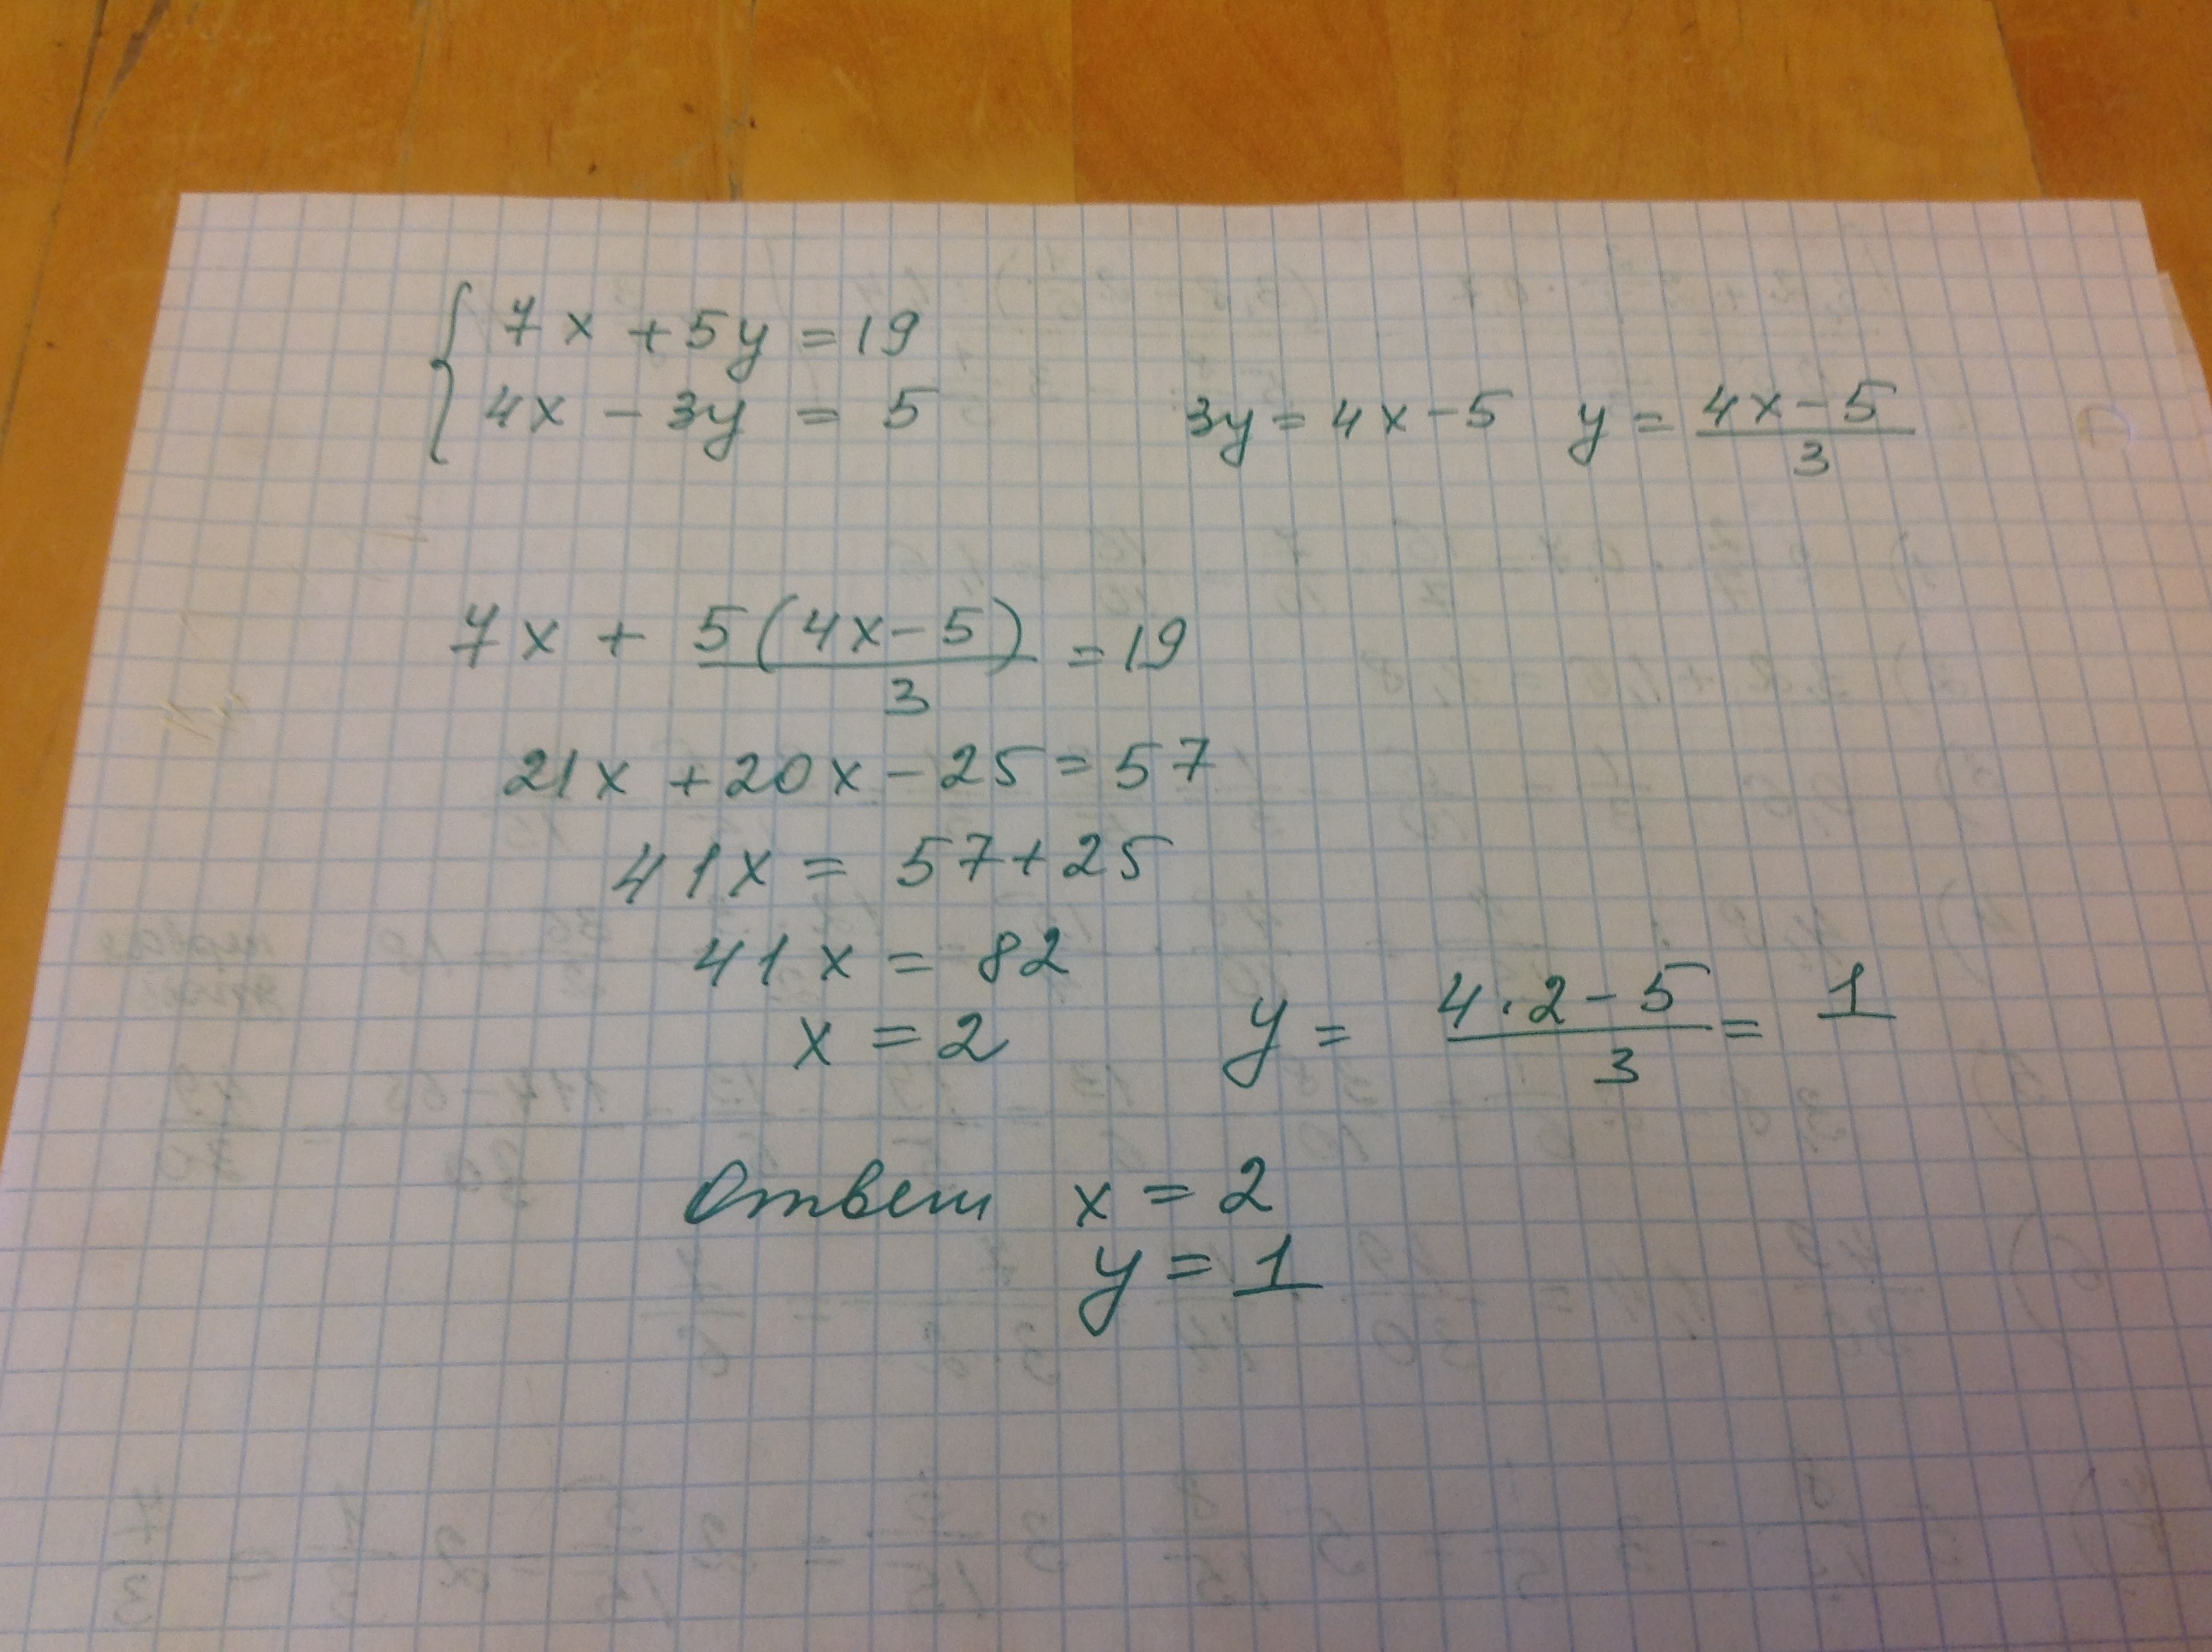 7x + 5y = 19
4x - 3y = 5    3y = 4x - 5    y = (4x - 5)/3
7x + 5(4x - 5)/3 = 19
21x + 20x - 25 = 57
41x = 57 + 25
41x = 82
x = 2    y = (4·2 - 5)/3 = 1
Ответ x = 2
y = 1